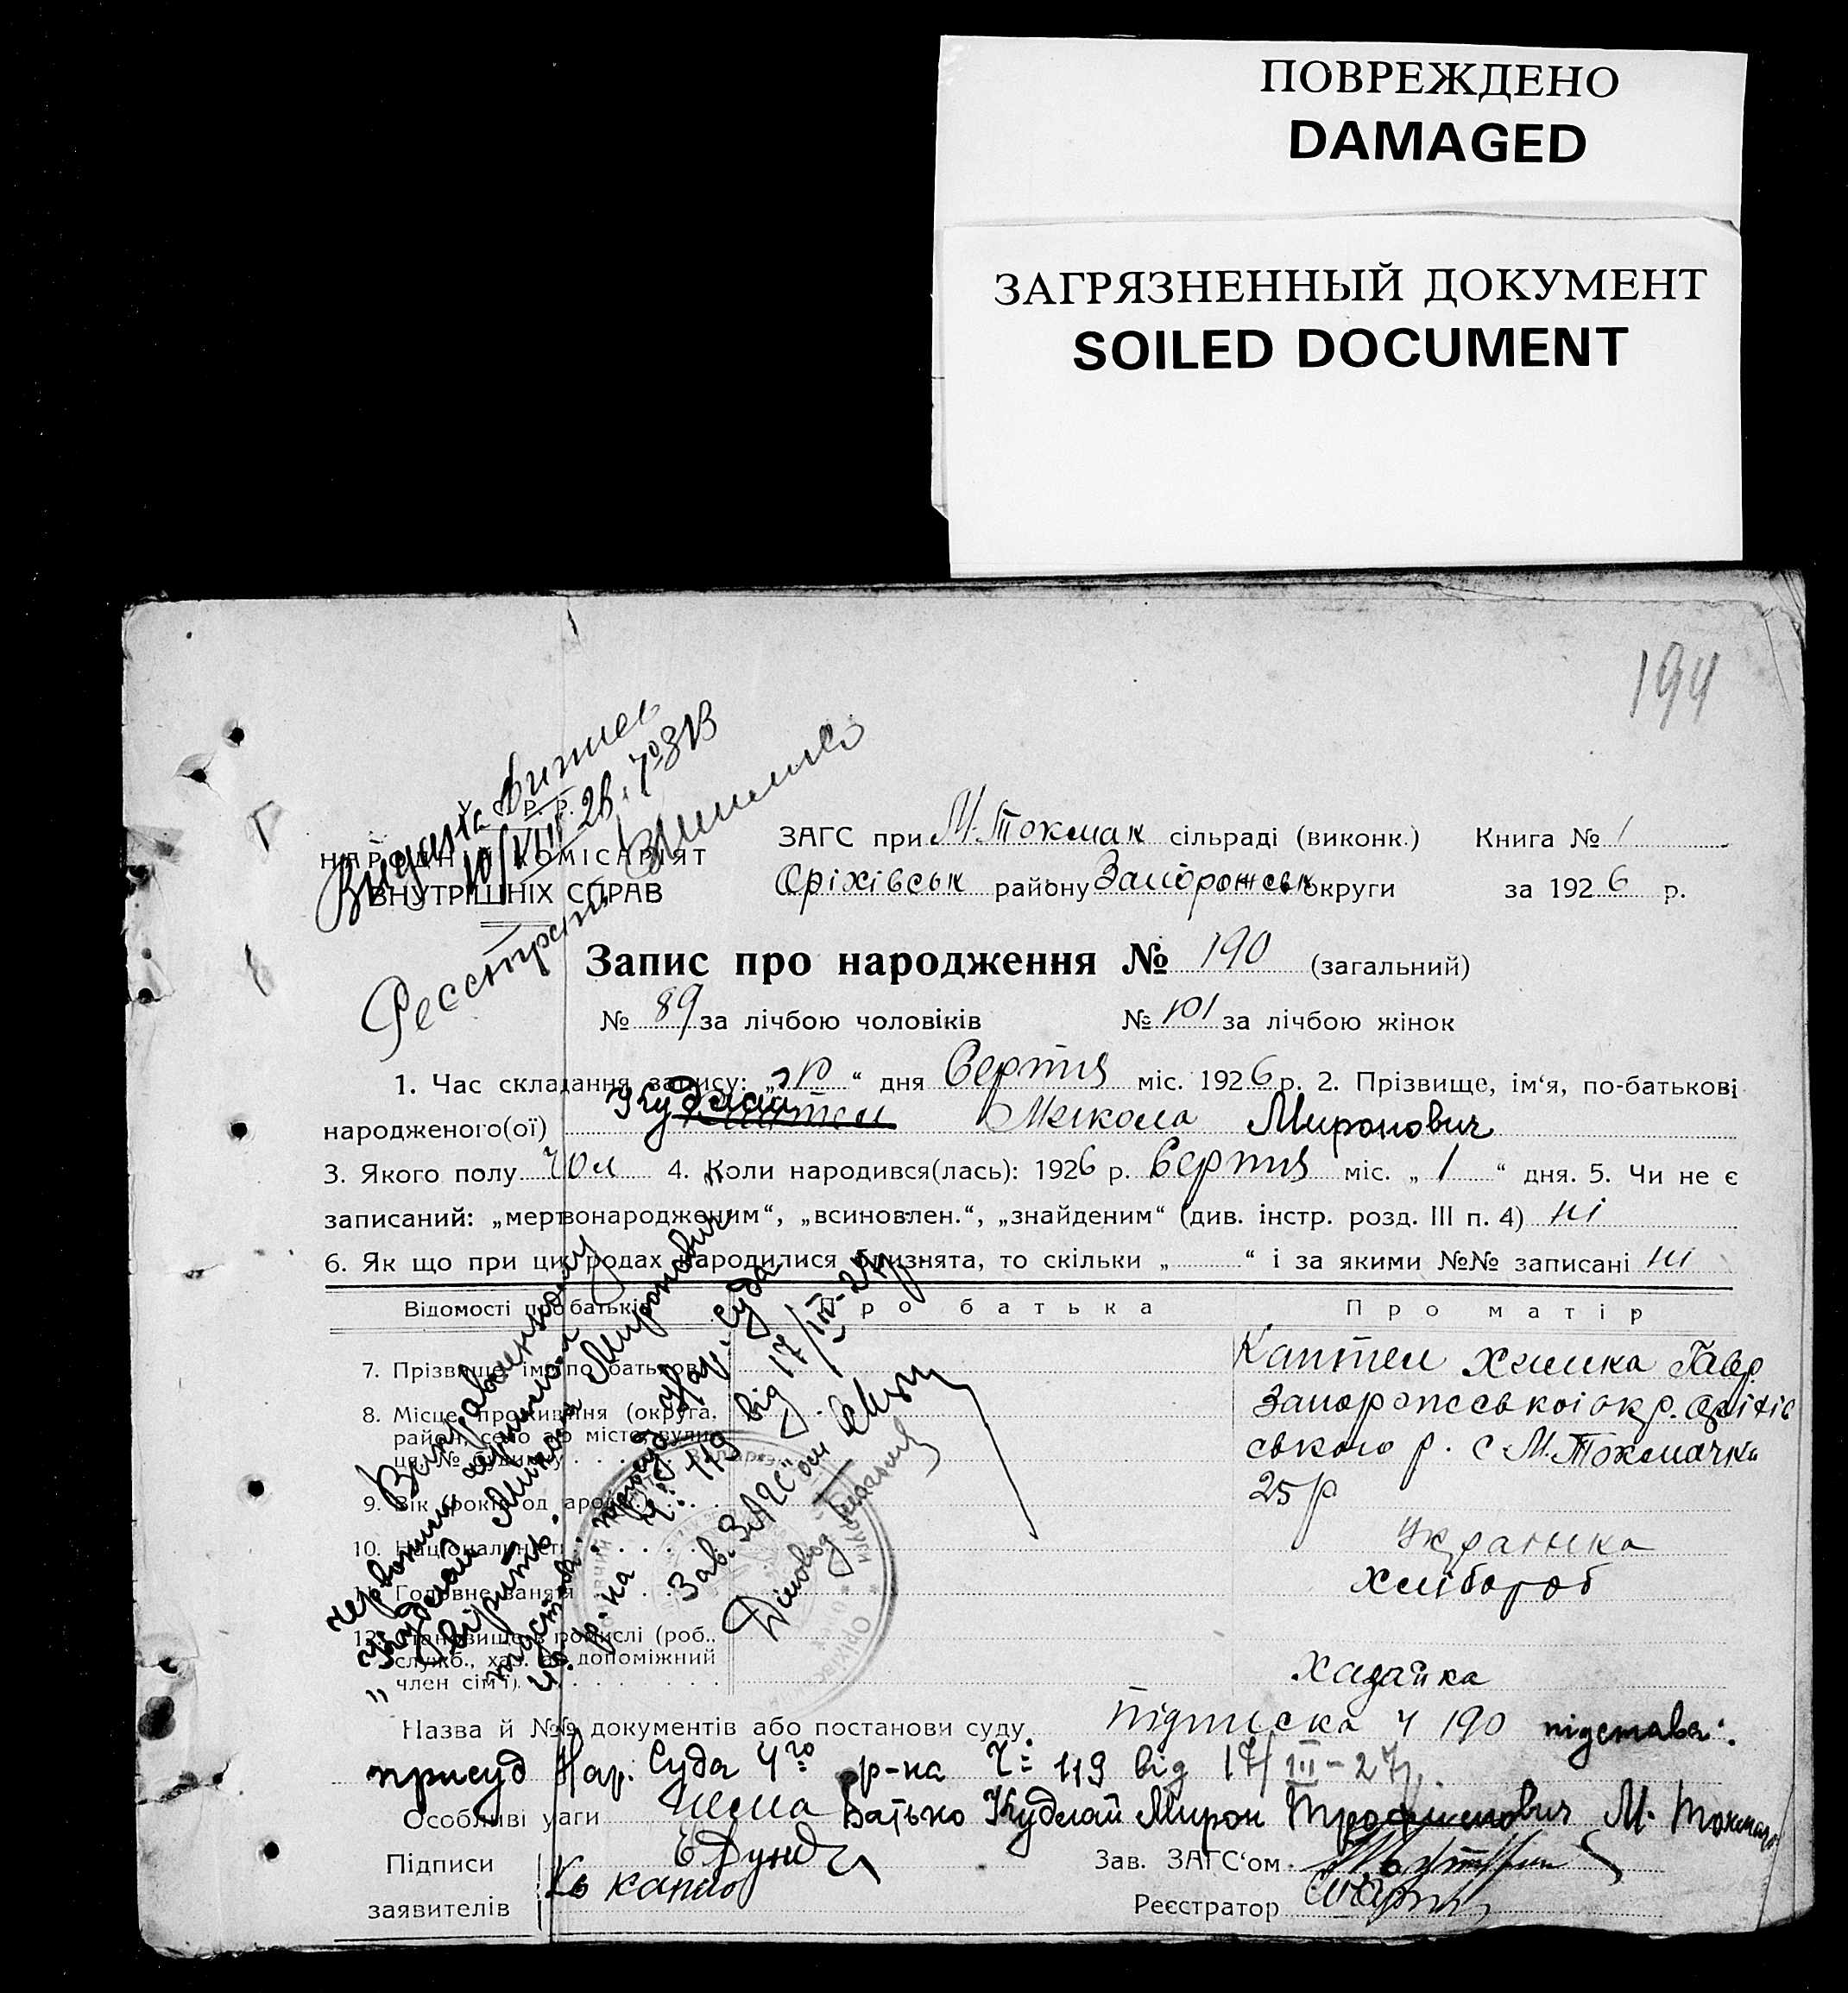 ПОВРЕЖДЕНО
DAMAGED
ЗАГРЯЗНЕННЫЙ ДОКУМЕНТ
SOILED DOCUMENT
194
У.С.Р.Р.
НАРОДНІЙ КОМІСАРІЯТ
ВНУТРІШНІХ СПРАВ
Видата витяг
10/VIII
Реєстратор
ЗАГС при М. Токмак сільраді (виконк.) Книга № 1
Оріхівськ району Запорожськ округи за 1926 р.
Запис про народження № 190 (загальний)
№ 89 за лічбою чоловіків № 101 за лічбою жінок
1. Час складання запису: „10“ дня Серпня міс. 1926 р. 2. Прізвище, ім‘я, по-батькові
Кудлай
народженого(ої) Каптел Микола Миронович
3. Якого полу чол 4. Коли народився(лась): 1926 р. Серпня міс. „1“ дня. 5. Чи не є
записаний: „мертвонародженим“, „всиновлен.“, „знайденим“ (див. інстр. розд. III п. 4) ні
6. Як що при цих родах народилися близнята, то скільки „ “ і за якими №№ записані ні
Відомості про батьків Про батька Про матір
7. Прізвище, ім‘я, по батькові Каптел Химка Гавр
8. Місце проживання (округа, район, село або місто, вулиця, № будинку Запорожської окр. Оріхів
ського р. с М. Токмачка
9. Вік (років од народж.) 25 р
10. Національність Українка
11. Головне заняття хлібороб
12. Становище в ромислі (роб., служб., хаз. або допоміжний член сім‘ї) хазайка
Виправленному
червоним чернилом
„Кудлай Микола Миронович“
вірить.
підстава: присуд Нар. Суда
4го р-на Ч: 119 від 17/III-27р.
Зав. ЗАГС“ом
Діловод
Назва й №№ документів або постанови суду Підписка ч 190 підстава:
присуд Нар. Суда 4го р-на Ч: 119 від 17/III-27р.
Особливі уваги Нема Батько Кудлай Мирон Трофимович М. Токмач
Підписи
заявителів
Зав. ЗАГС‘ом
Реєстратор